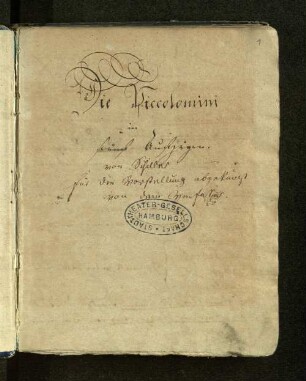 1
Die Piccolomini
in
fünf Aufzügen.
von Schiller
für die Vorstellung abgekürzt
von dem
STADTTHEATER-GESELLSCHAFT
HAMBURG